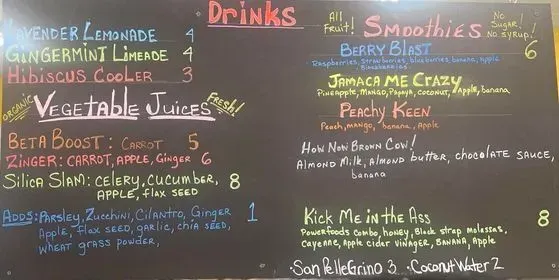 Drinks
LAVENDER LEMONADE 4
GiNGERMINT LIMEADE 4
HIBISCUS COOLER 3
ORGANIC VEGETABLE JUICES FRESH!
BETA BOOST: CARROT 5
ZINGER: CARROT, APPLE, GINGER 6
SILICA SLAM: CELERY, CUCUMBER, 8
APPLE, FLAX SEED
ADDS: PARSLEY, Zucchini, Cilantro, Ginger 1
Apple, flax seed, garlic, chia seed,
wheat grass powder,
All Fruit! Smoothies No Sugar! No Syrup!
BERRY BLAST 6
Raspberries, Strawberries, blueberries, banana, Apple
JAMACA ME CRAZY
PINEAPPLE, MANGO, PAPAYA, COCONUT, Apple, banana
PEACHY KEEN
Peach, mango, banana, Apple
HOW NOW BROWN COW!
ALMOND MILK, ALMOND butter, CHOCOLATE SAUCE,
banana
KICK ME IN THE ASS 8
Powerfoods combo, honey, Black strap molassas,
Cayenne, Apple cider vinager, BANANA, Apple
·San Pellegrino 3 ·Coconut Water 2